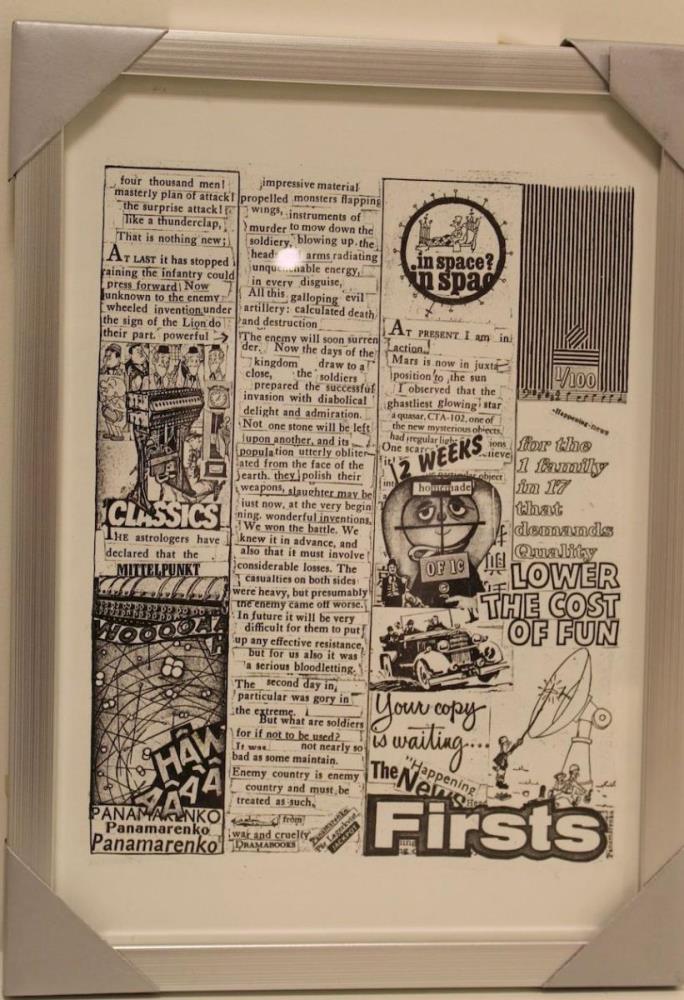 four thousand men!
masterly plan of attack!
the surprise attack!
like a thunderclap,
That is nothing new;
AT LAST it has stopped
raining the infantry could
press forward! Now
unknown to the enemy
wheeled invention under
the sign of the Lion do
their part. powerful →
CLASSICS
THE astrologers have
declared that the
MITTELPUNKT
WOOOOAA
HÂW
ÂÂÂ
PANAMARENKO
Panamarenko
Panamarenko
impressive material
propelled monsters flapping
wings, instruments of
murder to mow down the
soldiery, blowing up the
heads arms radiating
unquenchable energy,
in every disguise,
All this galloping evil
artillery: calculated death
and destruction
The enemy will soon surren
der. Now the days of the
kingdom draw to a
close, the soldiers
prepared the successful
invasion with diabolical
delight and admiration.
Not one stone will be left
upon another, and its
population utterly obliter
ated from the face of the
earth. they polish their
weapons, slaughter may be
just now, at the very begin
ning. wonderful inventions,
We won the battle. We
knew it in advance, and
also that it must involve
considerable losses. The
casualties on both sides
were heavy, but presumably
the enemy came off worse.
In future it will be very
difficult for them to put
up any effective resistance,
but for us also it was
a serious bloodletting.
The second day in
particular was gory in
the extreme.
But what are soldiers
for if not to be used?
It was not nearly so
bad as some maintain.
Enemy country is enemy
country and must be
treated as such.
from
war and cruelty
DRAMABOOKS
Panamarenko
in space?
n spac
AT PRESENT I am in
action!
Mars is now in juxta
position to the sun
I observed that the
ghastliest glowing star
a quasar, CTA-102, one of
the new mysterious objects,
had irregular
One scarc
2 WEEKS
object
homemade
OF 1c
1/100
Happening-news
for the
1 family
in 17
that
demands
Quality
LOWER
THE COST
OF FUN
Your copy
is waiting...
The "Happening
News
Firsts
Panamarenko